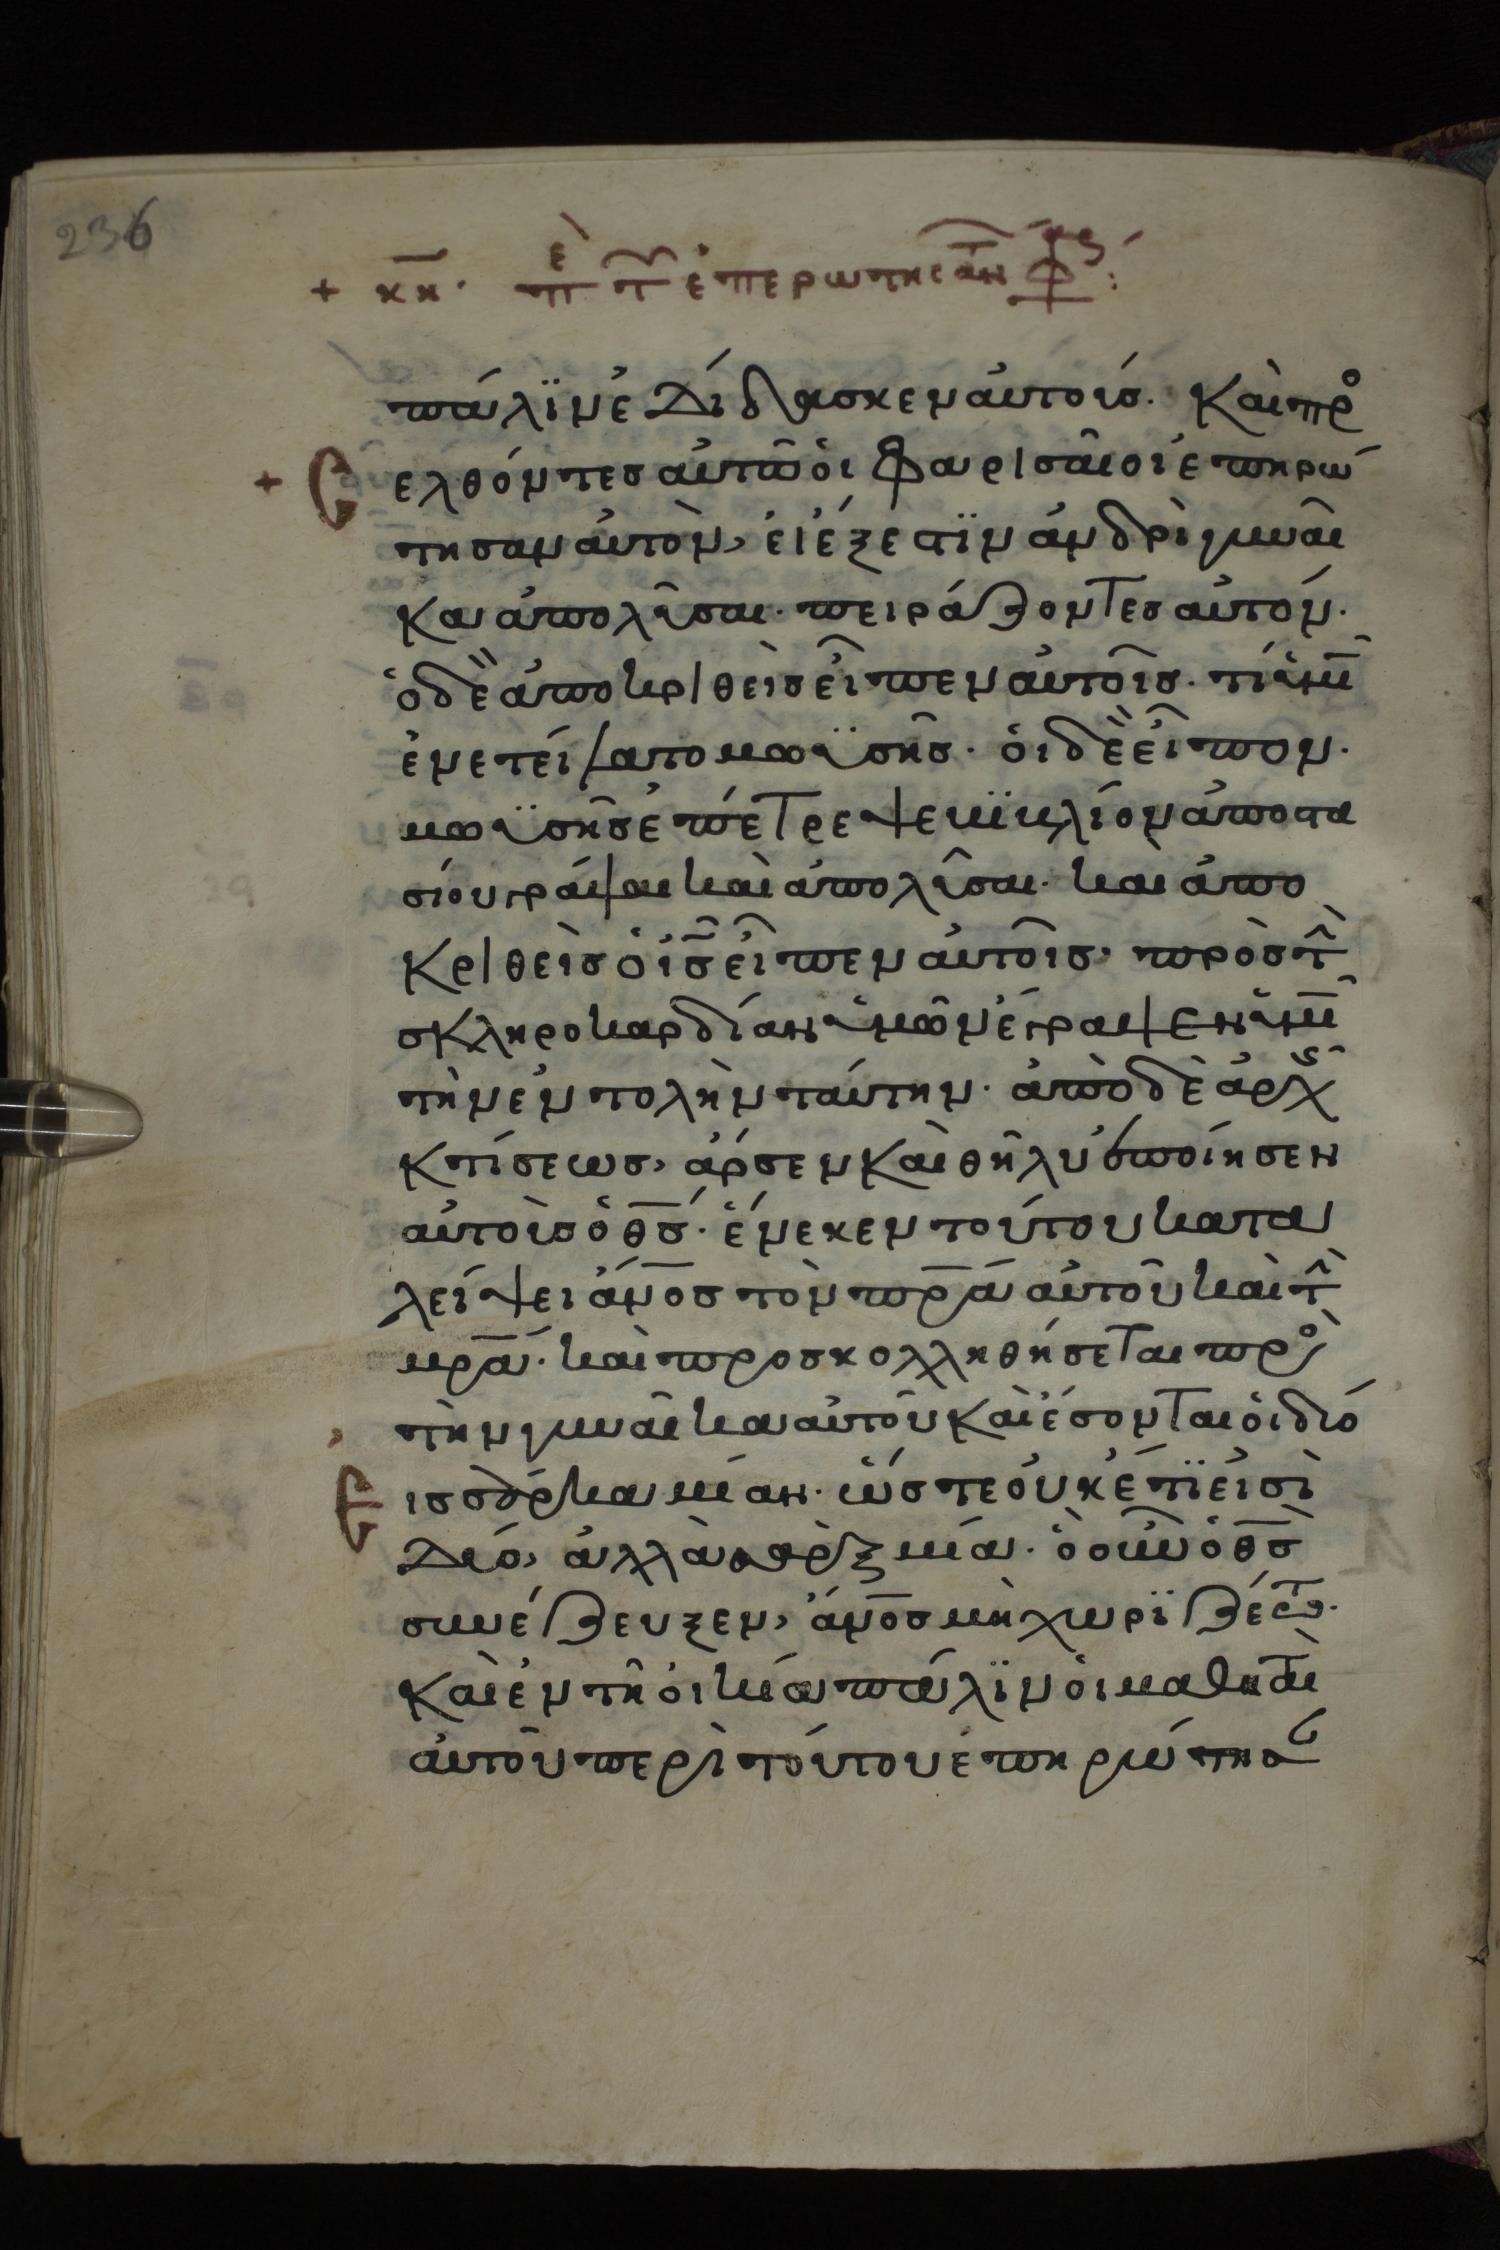 236
+ κη̅· πὲ τ̑ ἐπερωτησάντ φαρς:
πάλϊν ἐδίδασκεν αὐτοίσ. Καὶ πρ̊
+ Ϲ ελθόντεσ αὐτῶ ὁι Φαρισαῖοι ἐπηρώ
τησαν αὐτὸν, ἐι ἔξεστϊν ἀνδρὶ γυναῖ
κα ἀπολῦσαι· πειράζοντεσ αὐτόν.
ὁ δὲ ἀποκριθεὶσ εἶπεν αὐτοῖσ. τί ὑμῖ̅
ἐνετείλατο μωϋσῆσ. ὁι δὲ εἶπον.
μωϋσῆσ ἐπέτρεψε βϊβλίον ἀποστα
σίου γράψαι καὶ ἀπολῦσαι. καὶ ἀπο
κριθεὶσ ὁ ι̅σ̅ εἶπεν αὐτοῖσ, πρὸσ τὴ̅
σκληροκαρδίαν ὑμῶν ἔγραψεν ὑμῖ̅
τὴν ἐντολὴν ταύτην. ἀπὸ δὲ ἀρχῆσ
κτίσεωσ, ἄρσεν καὶ θῆλυ ἐποίησεν
αὐτοὺσ ὁ θ̅σ̅. ἕνεκεν τούτου κατα
λείψει ἄν̅ο̅σ τὸν π̅ρ̅α̅ αὐτοῦ καὶ τὴ̅
μ̅ρ̅α̅. καὶ προσκολληθήσεται πρ̊ὸσ
τὴν γυναῖκα αὐτοῦ καὶ ἔσονται ὁι δύο
Ε ισ σάρκα μίαν. ὥστε οὐκέτϊ εἰσὶ
Δύο, ἀλλὰ σὰρξ μία. ὁ οὖν ὁ θ̅σ̅
συνέζευξεν, ἄν̅ο̅σ μὴ χωρϊζέτω.
Καὶ ἐν τῆ οἰκία πάλϊν ὁι μαθηταὶ
αὐτοῦ περὶ τούτου ἐπηρώτησ